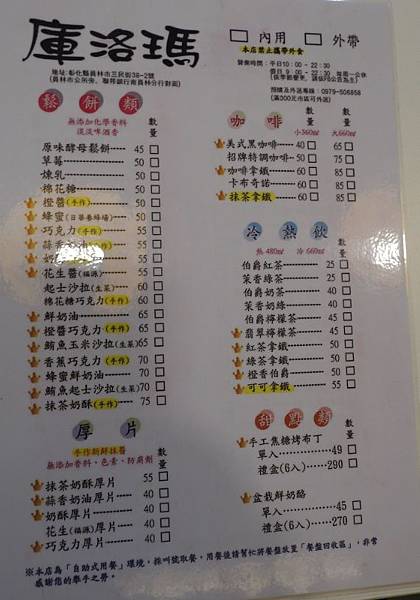 庫洛瑪
□ 內用 □ 外帶
本店禁止攜帶外食
地址:彰化縣員林市三民街38-2號
(員林市公所旁、聯邦銀行南員林分行對面)
營業時間:平日10:00-22:30
假日 9:00-22:30
預購及外送專線:0979-506858
(滿300元市區可外送)
鬆餅類
無添加化學香料
淡淡啤酒香
數量
原味酵母鬆餅 45 □
草莓 50 □
煉乳 50 □
棉花糖 50 □
橙醬(手作) 50 □
蜂蜜(日蓉養蜂場) 50 □
巧克力(手作) 50 □
蒜香奶油(手作) 50 □
花生醬(福源) 50 □
起士沙拉(生菜) 60 □
棉花糖巧克力(手作) 60 □
鮮奶油 65 □
橙醬巧克力(手作) 65 □
鮪魚玉米沙拉(生菜) 65 □
香蕉巧克力(手作) 70 □
蜂蜜鮮奶油 70 □
鮪魚起士沙拉(生菜) 70 □
抹茶奶酥(手作) 75 □
厚片
手作新鮮抹醬
無添加香料、色素、防腐劑
數量
抹茶奶酥厚片 55 □
蒜香奶油厚片 40 □
奶酥厚片 40 □
花生(福源)厚片 40 □
巧克力厚片 40 □
咖啡
數量
小360ml 大660ml
美式黑咖啡 40 □ 65 □
招牌特調咖啡 50 □ 75 □
咖啡拿鐵 60 □ 85 □
卡布奇諾 60 □ 85 □
抹茶拿鐵 60 □ 85 □
冷熱飲
熱 480ml 冷 660ml
數量
伯爵紅茶 25 □
茉香綠茶 25 □
伯爵奶茶 40 □
茉香奶綠 40 □
伯爵檸檬茶 45 □
翡翠檸檬茶 45 □
紅茶拿鐵 50 □
綠茶拿鐵 50 □
橙香伯爵 50 □
可可拿鐵 55 □
甜點類
數量
手工焦糖烤布丁
單入 49 □
禮盒(6入) 290 □
盆栽鮮奶酪
單入 45 □
禮盒(6入) 270 □
※本店為「自助式用餐」環境,採叫號取餐,用餐後請幫忙將餐盤放置「餐盤回收區」,非常
感謝您的舉手之勞。